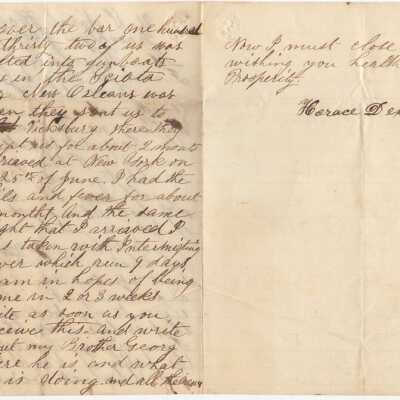 over the bar one hundred
thirty two of us was
into gunboats
in the Sciota
New Orleans was
they sent us to
Vicksburg there they
kept us for about 2 month
arrieved at New York on
25th of June. I had the
and fever for about
month and the same
night that I arrieved I
taken with Intermitting
ver which run 9 days
am in hopes of being
me in 2 or 3 weeks
as soon as you
ceive this. and write
out my Brother Georg
re he is, and what
is doing. and all the news
Now I must close
wishing you health
Prosperity.
Horace De